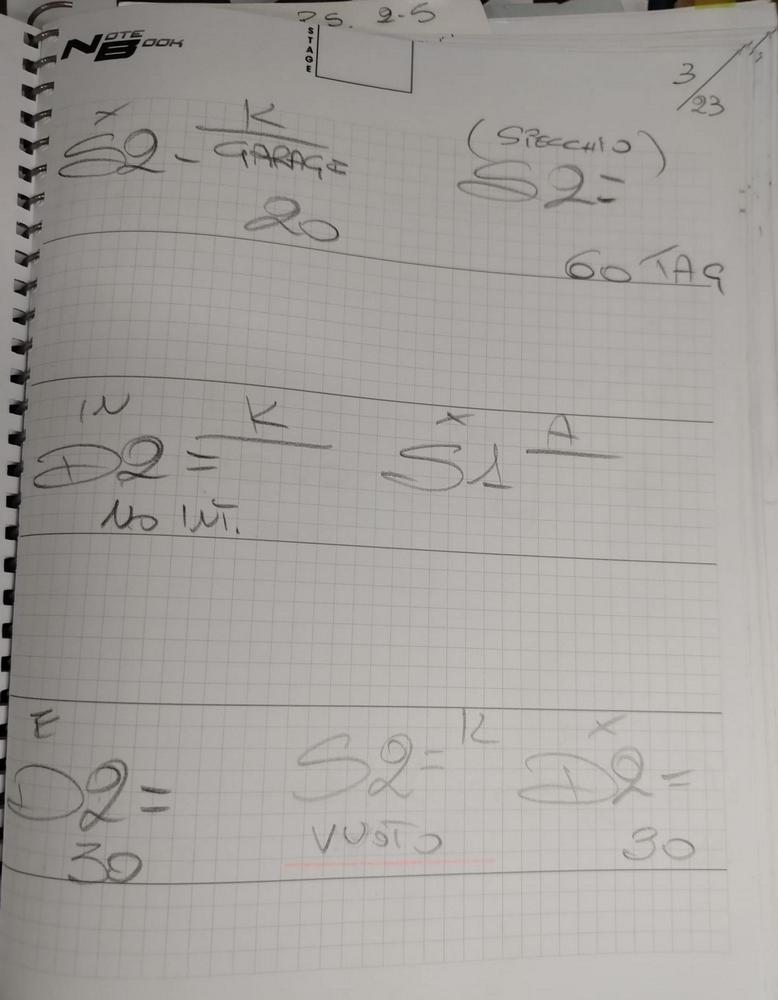 PS. 2-5
NOTE BOOK
STAGE
3/23
X K
S2 - GARAGE
20
(SPECCHIO)
S2=
60 TAG
IN K X A
D2 = S1
NO INT.
E K X
D2= S2= D2=
30 VUOTO 30